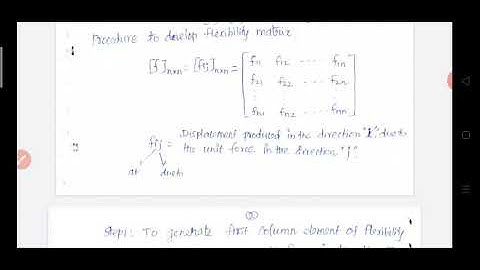 Procedure to develop flexibility matrix
[f]nxn = [fij]nxn = [ f11 f12 ---- f1n
f21 f22 ---- f2n
⋮
fn1 fn2 ---- fnn ]
fij = Displacement produced in the direction "i", due to
the unit force in the direction "j".
at due to
Step1: To generate first column element of flexibility